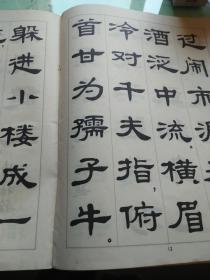 过闹市
酒泛中流横眉
冷对千夫指，俯
首甘为孺子牛。
躲进小楼成一